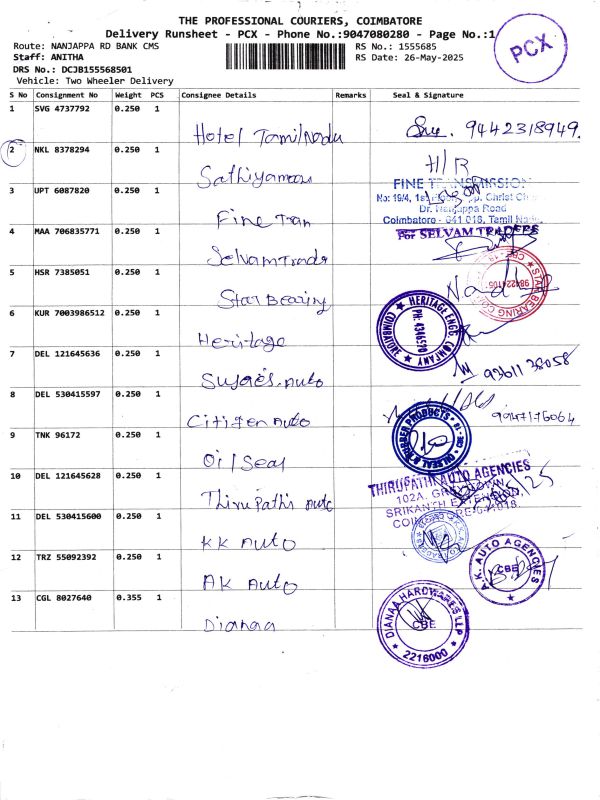 THE PROFESSIONAL COURIERS, COIMBATORE
Delivery Runsheet - PCX - Phone No.:9047080280 - Page No.:1
Route: NANJAPPA RD BANK CMS
RS No.: 1555685
Staff: ANITHA
RS Date: 26-May-2025
DRS No.: DCJB155568501
Vehicle: Two Wheeler Delivery
PCX
S No Consignment No Weight PCS Consignee Details Remarks Seal & Signature
1 SVG 4737792 0.250 1
Hotel Tamilnadu
9442318949.
2 NKL 8378294 0.250 1
Sathiyaman
H/R
3 UPT 6087820 0.250 1
Fine Tran
FINE TRANSMISSION
No: 19/4, 1st Floor, Christ
Dr. Nanjappa Road
Coimbatore - 641 018, Tamil Nadu
4 MAA 706835771 0.250 1
Selvam Trads
For SELVAM TRADERS
5 HSR 7385051 0.250 1
Star Bearing
STAR BEARING
6 KUR 7003986512 0.250 1
Heritage
HERITAGE ENGG. COMPANY
PH: 4346570
COIMBATORE
7 DEL 121645636 0.250 1
Sujaes. Auto
93611 38058
8 DEL 530415597 0.250 1
Citizen Auto
9947175064
9 TNK 96172 0.250 1
Oil Seal
OILSEAL & RUBBER PRODUCTS
10 DEL 121645628 0.250 1
Thirupathi Auto
THIRUPATHI AUTO AGENCIES
102A,
SRIKANTH EXTENSION,
11 DEL 530415600 0.250 1
KK Auto
12 TRZ 55092392 0.250 1
AK Auto
A.K. AUTO AGENCIES
CBE
13 CGL 8027640 0.355 1
Dianaa
DIANAA HARDWARES LLP
CBE
2216000